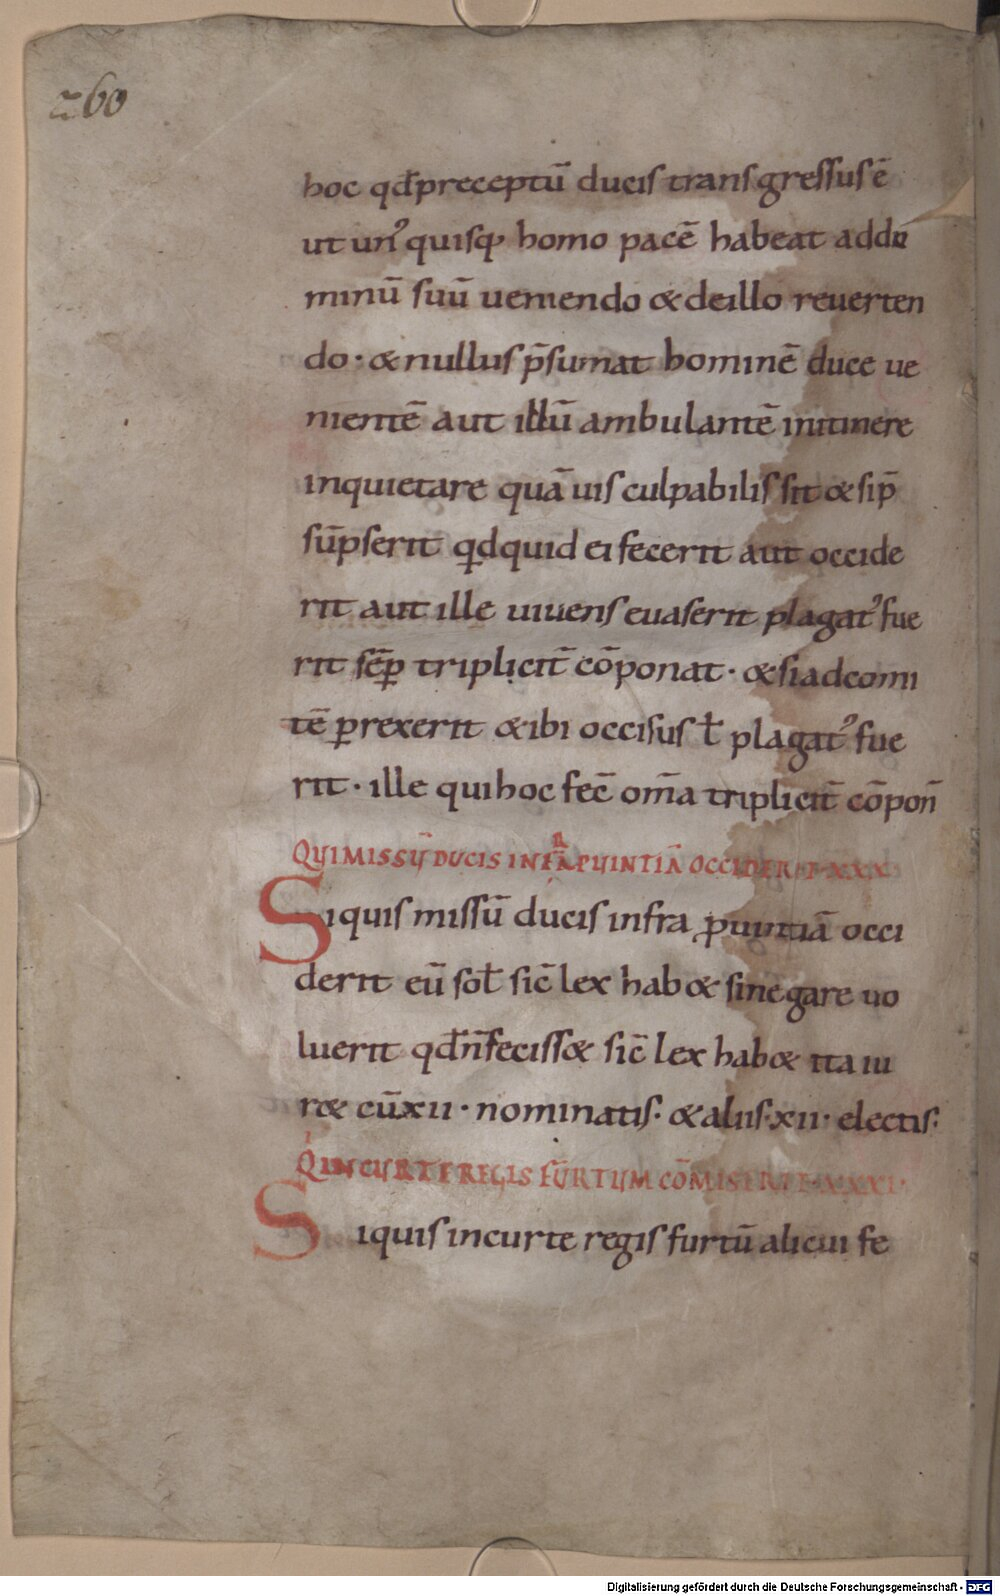 260
hoc qđ preceptū ducis transgressus ē
ut un᾽ quisq; homo pacē habeat ad do
minū suū ueniendo & de illo reuerten
do · & nullus p̄sumat hominē duce ue
nientē aut illū ambulantē in itinere
inquietare quāuis culpabilis sit & si p̄
sūpserit qdquid ei fecerit aut occide
rit aut ille uiuens euaserit plagat᾽ fue
rit sēp triplicit̄ cōponat · & si ad comi
tē prexerit & ibi occisus ł plagat᾽ fue
rit · ille qui hoc fec̄ om̄a triplicit̄ cōpon̄
QUI MISSŪ DUCIS INFRA PUINTIĀ OCCIDERIT XXX
Siquis missū ducis infra puintiā occi
derit eū sol̄ sic̄ lex hab& si negare uo
luerit qđ n̄ feciss& sic̄ lex hab& ita iu
r& cū xii · nominatis · & aliis · xii · electis ·
Q̇ IN CURTE REGIS FŪRTUM CŌMISERIT XXXI ·
Siquis in curte regis furtū alicui fe
Digitalisierung gefördert durch die Deutsche Forschungsgemeinschaft - DFG